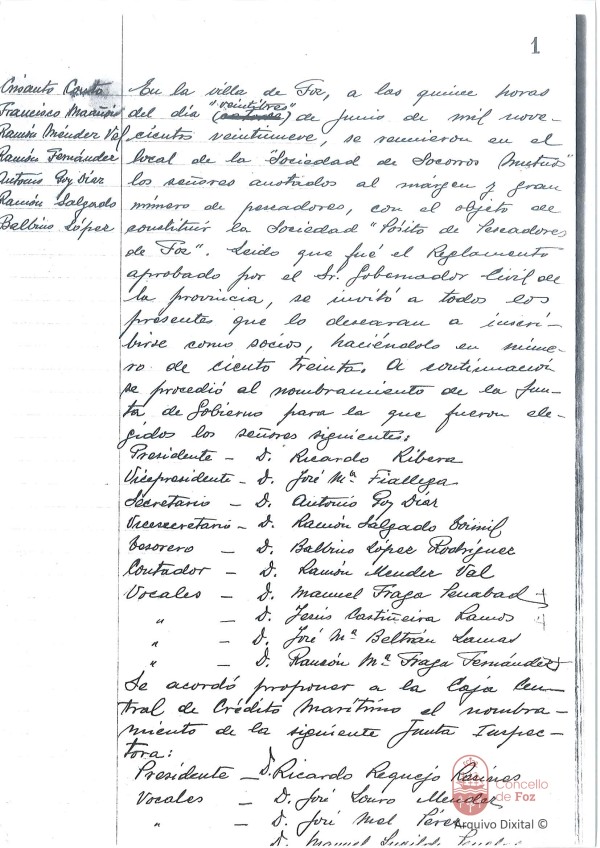 1
Crisanto Canto
Francisco Maañón
Ramón Méndez Val
Ramón Fernández
Antonio Goy Díaz
Ramón Salgado
Balbino López
En la villa de Foz, a las quince horas
del día "veintitres" (catorce) de junio de mil nove-
cientos veintinueve, se reunieron en el
local de la "Sociedad de Socorros Mutuos"
los señores anotados al margen y gran
número de pescadores, con el objeto de
constituir la Sociedad "Pósito de Pescadores
de Foz". Leido que fué el Reglamento
aprobado por el Sr. Gobernador Civil de
la provincia, se invitó a todos los
presentes que lo desearan a inscri-
birse como socios, haciéndolo en núme-
ro de ciento treinta. A continuación
se procedió al nombramiento de la Jun-
ta de Gobierno para la que fueron ele-
gidos los señores siguientes:
Presidente - D. Ricardo Ribera
Vicepresidente - D. José Mª Fiallega
Secretario - D. Antonio Goy Díaz
Vicesecretario - D. Ramón Salgado Doimil
Tesorero - D. Balbino López Rodríguez
Contador - D. Ramón Mendez Val
Vocales - D. Manuel Fraga Penabad
" - D. Jesús Castiñeira Ramos
" - D. José Mª Beltrán Lamas
" - D. Ramón Mª Fraga Fernández
Se acordó proponer a la Caja Cen-
tral de Crédito Marítimo el nombra-
miento de la siguiente Junta Inspec-
tora:
Presidente - D. Ricardo Requejo
Vocales - D. José Louro Mendez
" - D. José Mel Pérez
D. Manuel
Concello
de Foz
Arquivo Dixital ©